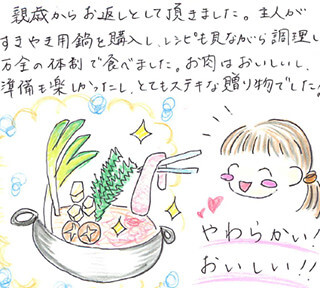 親戚からお返しとして頂きました。主人が
すきやき用鍋を購入し、レシピも見ながら調理し
万全の体制で食べました。お肉はおいしいし、
準備も楽しかったし、とてもステキな贈り物でした!
やわらかい!
おいしい!!